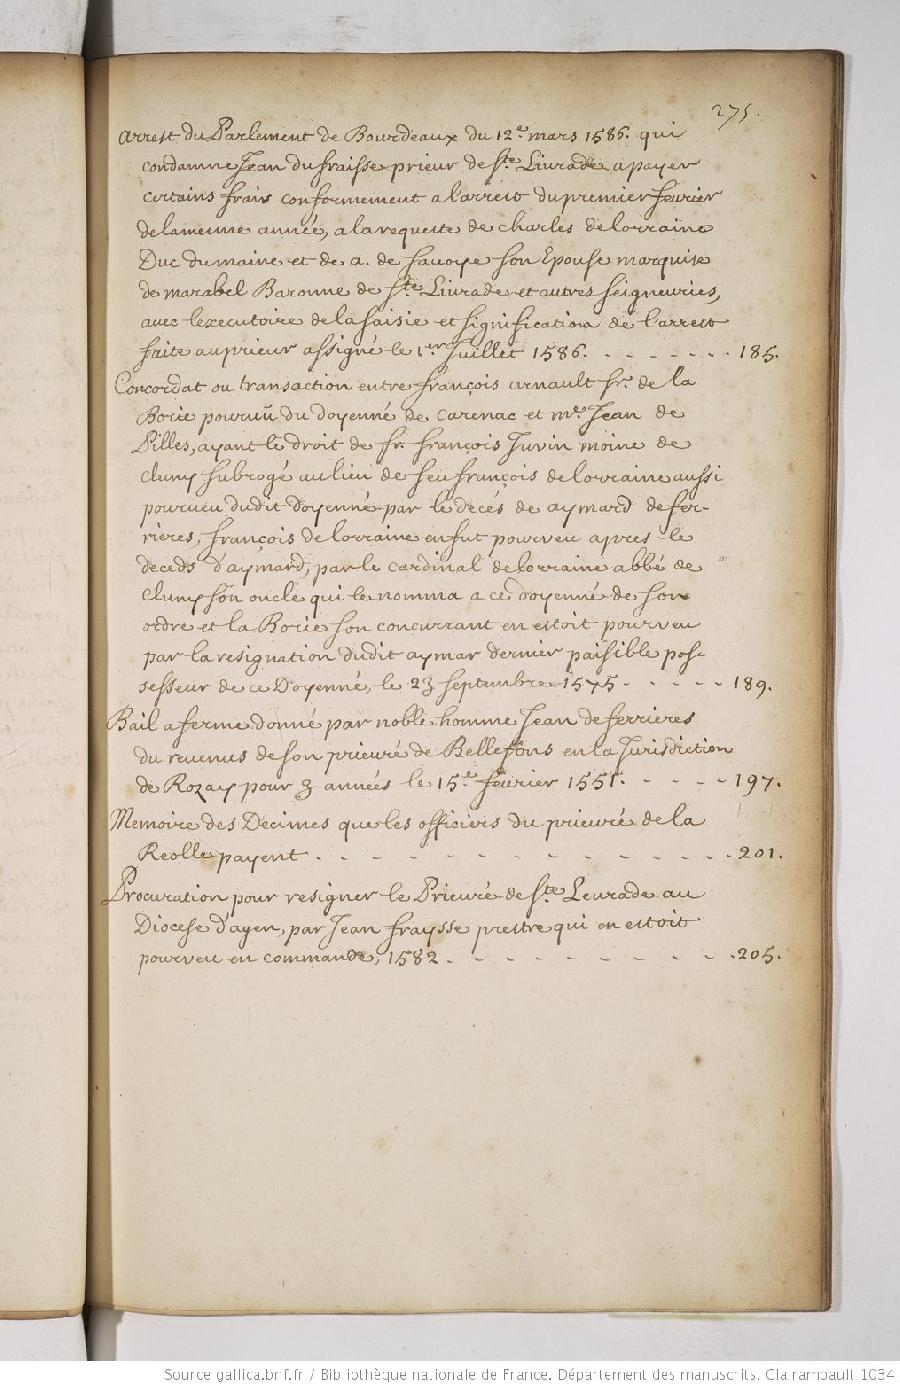 275.
Arrest du Parlement de Bourdeaux du 12e mars 1586. qui
condamne Jean du fraisse prieur de Ste Livrade a payer
certains frais conformement a l'arrest du premier fevrier
de la mesme année, a la requeste de Charles de lorraine
Duc du maine et de a. de Savoye son Epouse marquise
de marabel Baronne de Ste Livrade et autres seigneuries,
avec l'executoire de la saisie et signification de l'arrest
faite au prieur assigné le 1er Juillet 1586. - - - - - - - 185.
Concordat ou transaction entre françois arnault sr. de la
Borie pourvû du doyenné de Carenac et me Jean de
Pilles, ayant le droit de fr. françois Juvin moine de
Cluny subrogé au lieu de feu françois de lorraine aussi
pourveu dudit doyenné par le decés de aymard de fer-
rieres, françois de lorraine en fut pourveu apres le
deceds d'aymard, par le Cardinal de lorraine abbé de
Cluny son oncle qui le nomma a ce doyenné de son
ordre et la Borie son concurrant en estoit pourveu
par la resignation dudit aymar dernier paisible pos-
sesseur de ce Doyenné, le 23 septembre 1575. - - - - - 189.
Bail a ferme donné par noble homme Jean de ferrieres
du revenus de son prieuré de Bellefons en la Jurisdiction
de Rozay pour 3 années le 15e fevrier 1551. - - - - - 197.
Memoire des Decimes que les officiers du prieuré de la
Reolle payent . - - - - - - - - - - - - - - - 201.
Procuration pour resigner le Prieuré de Ste Leurade au
Diocese d'agen, par Jean fraysse prestre qui en estoit
pourveu en commande, 1582 . - - - - - - - - - - - 205.
Source gallica.bnf.fr / Bibliothèque nationale de France. Département des manuscrits. Clairambault 1034